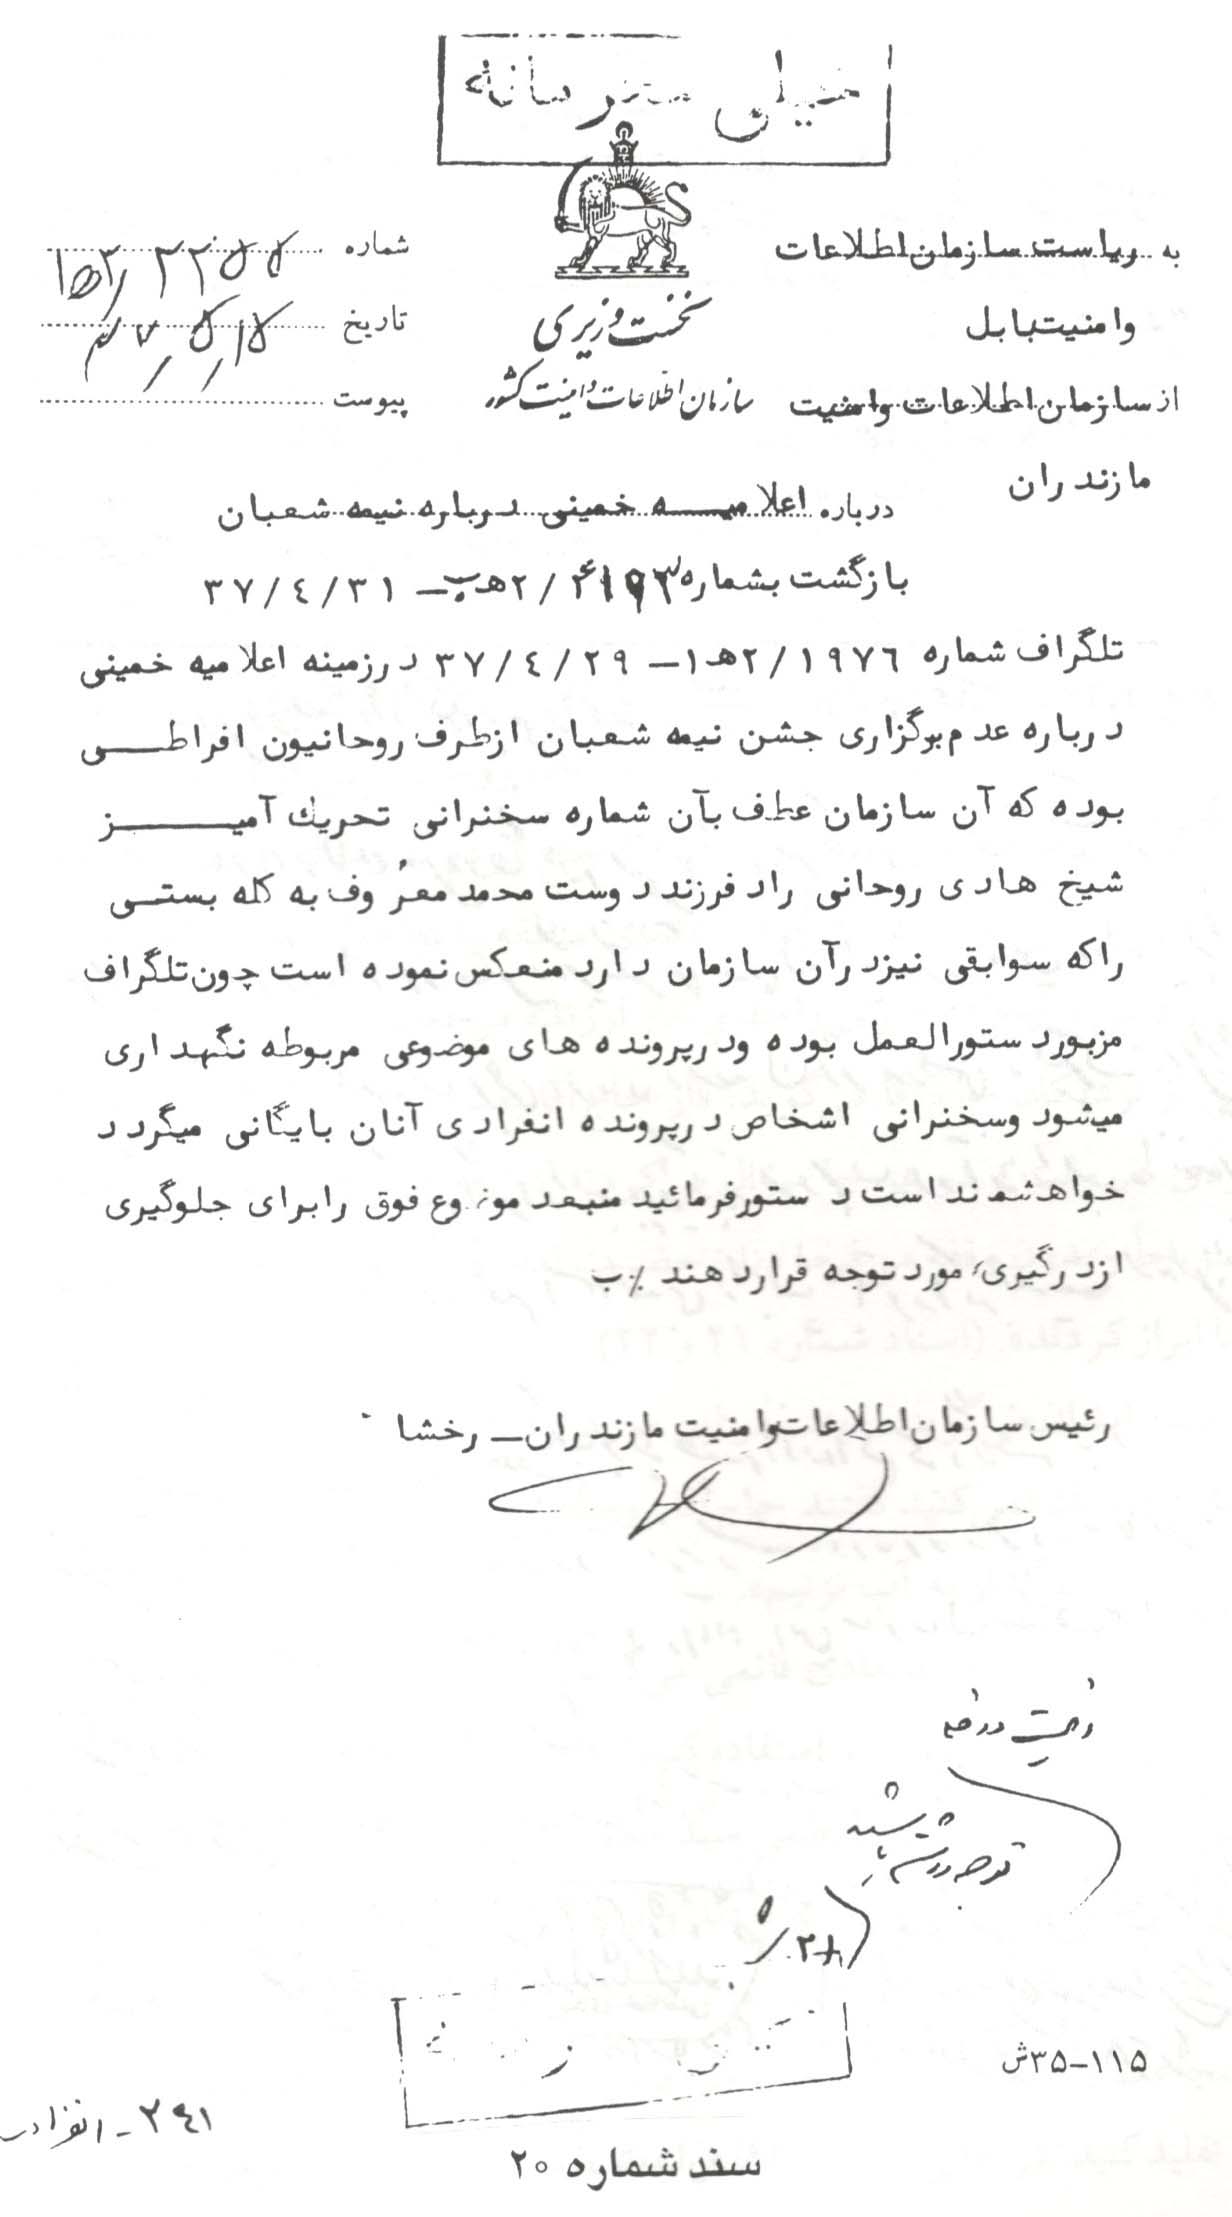 خیلی محرمانه
به ریاست سازمان اطلاعات
وامنیت بابل
از سازمان اطلاعات وامنیت
مازندران
نخست وزیری
سازمان اطلاعات و امنیت کشور
شماره
تاریخ ۳۷/۵/۱۵
پیوست
درباره اعلامیــه خمینی درباره نیمه شعبان
بازگشت بشماره ۲/۶۱۹۳هـ ب ــ ۳۷/٤/۳۱
تلگراف شماره ۲/۱۹۷٦هـ۱ــ ۳۷/٤/۲۹ درزمینه اعلامیه خمینی
درباره عدم برگزاری جشن نیمه شعبان ازطرف روحانیون افراطــی
بوده که آن سازمان عطف بآن شماره سخنرانی تحریك آمیــز
شیخ هادی روحانی راد فرزند دوست محمد معروف به کله بستــی
راکه سوابقی نیزدرآن سازمان دارد منعکس نموده است چون تلگراف
مزبورد ستورالعمل بوده ودرپرونده های موضوعی مربوطه نگهداری
میشود وسخنرانی اشخاص درپرونده انفرادی آنان بایگانی میگردد
خواهشمند است دستورفرمائید منبعد موضوع فوق رابرای جلوگیری
ازدرگیری مورد توجه قراردهند ٪ب
رئیس سازمان اطلاعات وامنیت مازندران ــ رخشا
توجه داشته باشید
۵/۲۸
۳۵-۱۱۵ش
۲۴۱ - انفرادی
سند شماره ۲۰